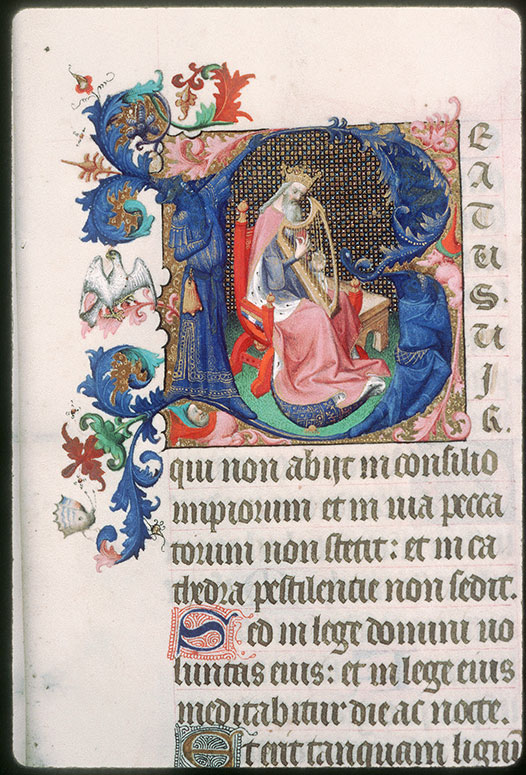 BEATUS. UIR.
qui non abijt in consilio
impiorum et in uia pecca
torum non stetit: et in ca
thedra pestilentie non sedit.
Sed in lege domini uo
luntas eius: et in lege eius
meditabitur die ac nocte.
Et erit tanquam lignū